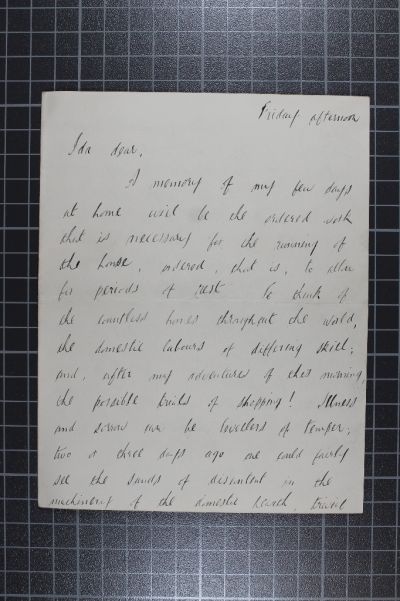 Friday afternoon
Ida dear,
A memory of my few days
at home will be the ordered work
that is necessary for the running of
the house, ordered, that is, to allow
for periods of rest. To think of
the countless homes throughout the world,
the domestic labours of differing skill;
and, after my adventure of this morning,
the possible trials of shopping! Illness
and sorrow can be levellers of temper;
two or three days ago one could fairly
see the sands of discontent in the
machinery of the domestic hearth,